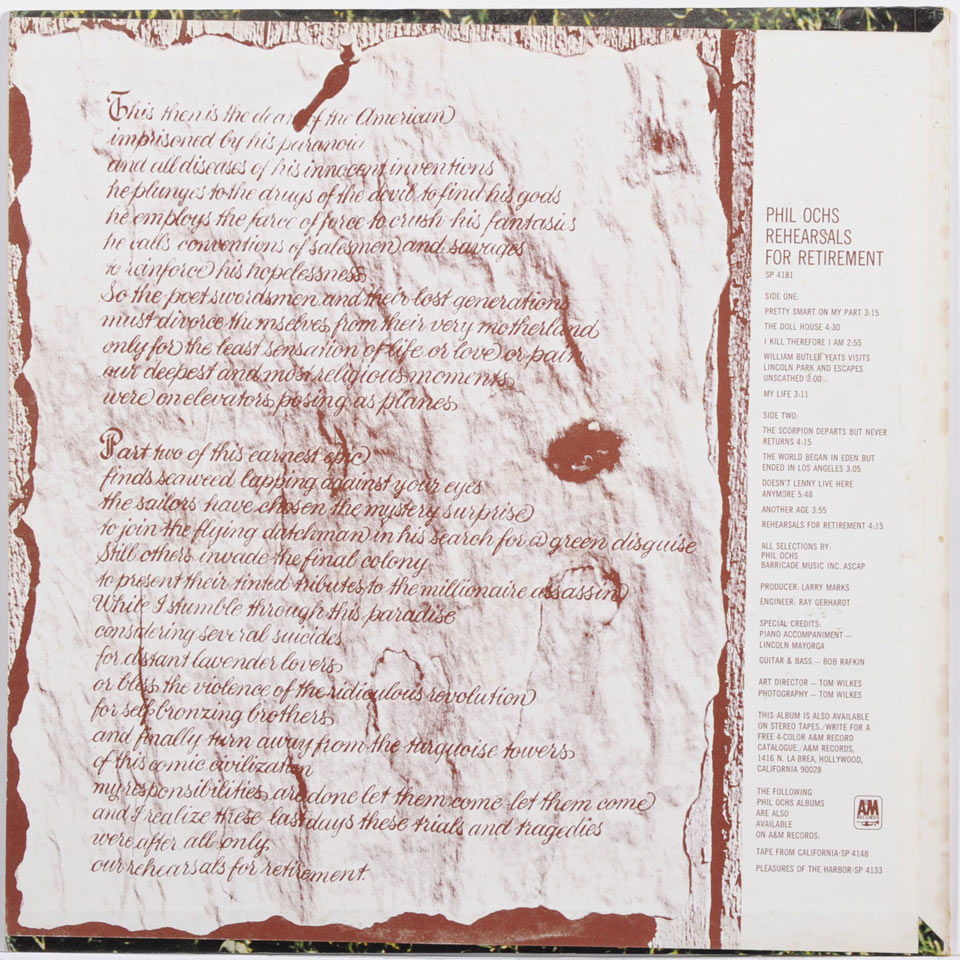 This then is the death of the American
imprisoned by his paranoia
and all diseases of his innocent inventions
he plunges to the drugs of the devil to find his gods
he employs the farce of force to crush his fantasies
he calls conventions of salesmen and savages
to reinforce his hopelessness
So the poet swordsmen and their lost generations
must divorce themselves from their very motherland
only for the least sensation of life or love or pain
our deepest and most religious moments
were on elevators posing as planes
Part two of this earnest epic
finds seaweed lapping against your eyes
the sailors have chosen the mystery surprise
to join the flying dutchman in his search for a green disguise
Still others invade the final colony
to present their tinted tributes to the millionaire assassin
While I stumble through this paradise
considering several suicides
for distant lavender lovers
or bless the violence of the ridiculous revolution
for self bronzing brothers
and finally turn away from the turquoise towers
of this comic civilization
my responsibilities are done let them come let them come
and I realize these last days these trials and tragedies
were after all only,
our rehearsals for retirement.
PHIL OCHS
REHEARSALS
FOR RETIREMENT
SP 4181
SIDE ONE:
PRETTY SMART ON MY PART 3:15
THE DOLL HOUSE 4:30
I KILL THEREFORE I AM 2:55
WILLIAM BUTLER YEATS VISITS
LINCOLN PARK AND ESCAPES
UNSCATHED 3:00
MY LIFE 3:11
SIDE TWO:
THE SCORPION DEPARTS BUT NEVER
RETURNS 4:15
THE WORLD BEGAN IN EDEN BUT
ENDED IN LOS ANGELES 3:05
DOESN'T LENNY LIVE HERE
ANYMORE 5:48
ANOTHER AGE 3:55
REHEARSALS FOR RETIREMENT 4:15
ALL SELECTIONS BY:
PHIL OCHS
BARRICADE MUSIC INC. ASCAP
PRODUCER: LARRY MARKS
ENGINEER: RAY GERHARDT
SPECIAL CREDITS:
PIANO ACCOMPANIMENT —
LINCOLN MAYORGA
GUITAR & BASS — BOB RAFKIN
ART DIRECTOR — TOM WILKES
PHOTOGRAPHY — TOM WILKES
THIS ALBUM IS ALSO AVAILABLE
ON STEREO TAPES./WRITE FOR A
FREE 4-COLOR A&M RECORD
CATALOGUE./A&M RECORDS,
1416 N. LA BREA, HOLLYWOOD,
CALIFORNIA 90028
THE FOLLOWING
PHIL OCHS ALBUMS
ARE ALSO
AVAILABLE
ON A&M RECORDS:
A&M
RECORDS
TAPE FROM CALIFORNIA-SP 4148
PLEASURES OF THE HARBOR-SP 4133